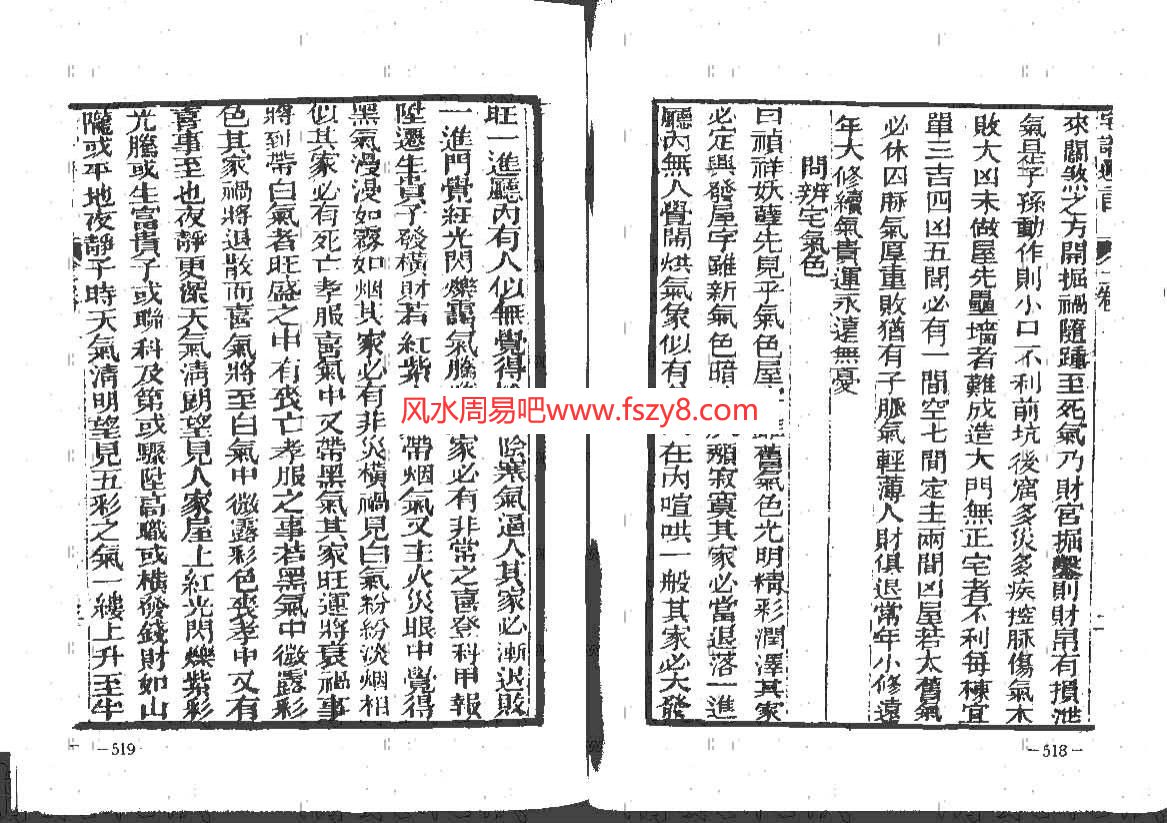 來關煞之方開掘禍隨踵至死氣乃財宮掘鑿則財帛有損泄
氣是子孫動作則小口不利前坑後窟多災多疾控脉傷氣木
敗大凶未做屋先壘墻者難成造大門無正宅者不利每棟宜
單三吉四凶五間必有一間空七間定主兩間凶屋若太舊氣
必休四脉氣厚重敗猶有子脈氣輕薄人財俱退當年小修遠
年大修續氣貴運永遠無憂
問辨宅氣色
曰禎祥妖孽先見乎氣色屋 舊氣色光明精彩潤澤其家
必定興發屋宇雖新氣色暗 寂寞其家必當退落一進
廳內無人覺鬧烘氣象似有 在內喧哄一般其家必大發
—518—
旺一進廳內有人似無覺得 陰寒氣逼人其家必漸退敗
一進門覺紅光閃爍靄氣騰 家必有非常之喜登科甲報
陞遷生貴子發橫財若紅紫 帶烟氣又主火災眼中覺得
黑氣漫漫如霧如烟其家必有非災橫禍見白氣紛紛淡烟相
似其家必有死亡孝服喜氣中又帶黑氣其家旺運將衰禍事
將到帶白氣者旺盛之中有喪亡孝服之事若黑氣中微露彩
色其家禍將退散而喜氣將至白氣中微露彩色喪孝中又有
喜事至也夜靜更深天氣清朗望見人家屋上紅光閃爍紫彩
光騰或生富貴子或聯科及第或驟陞高職或橫發錢財如山
隴或平地夜靜子時天氣清明望見五彩之氣一縷上升至牛
—519
风水周易吧www.fszy8.com